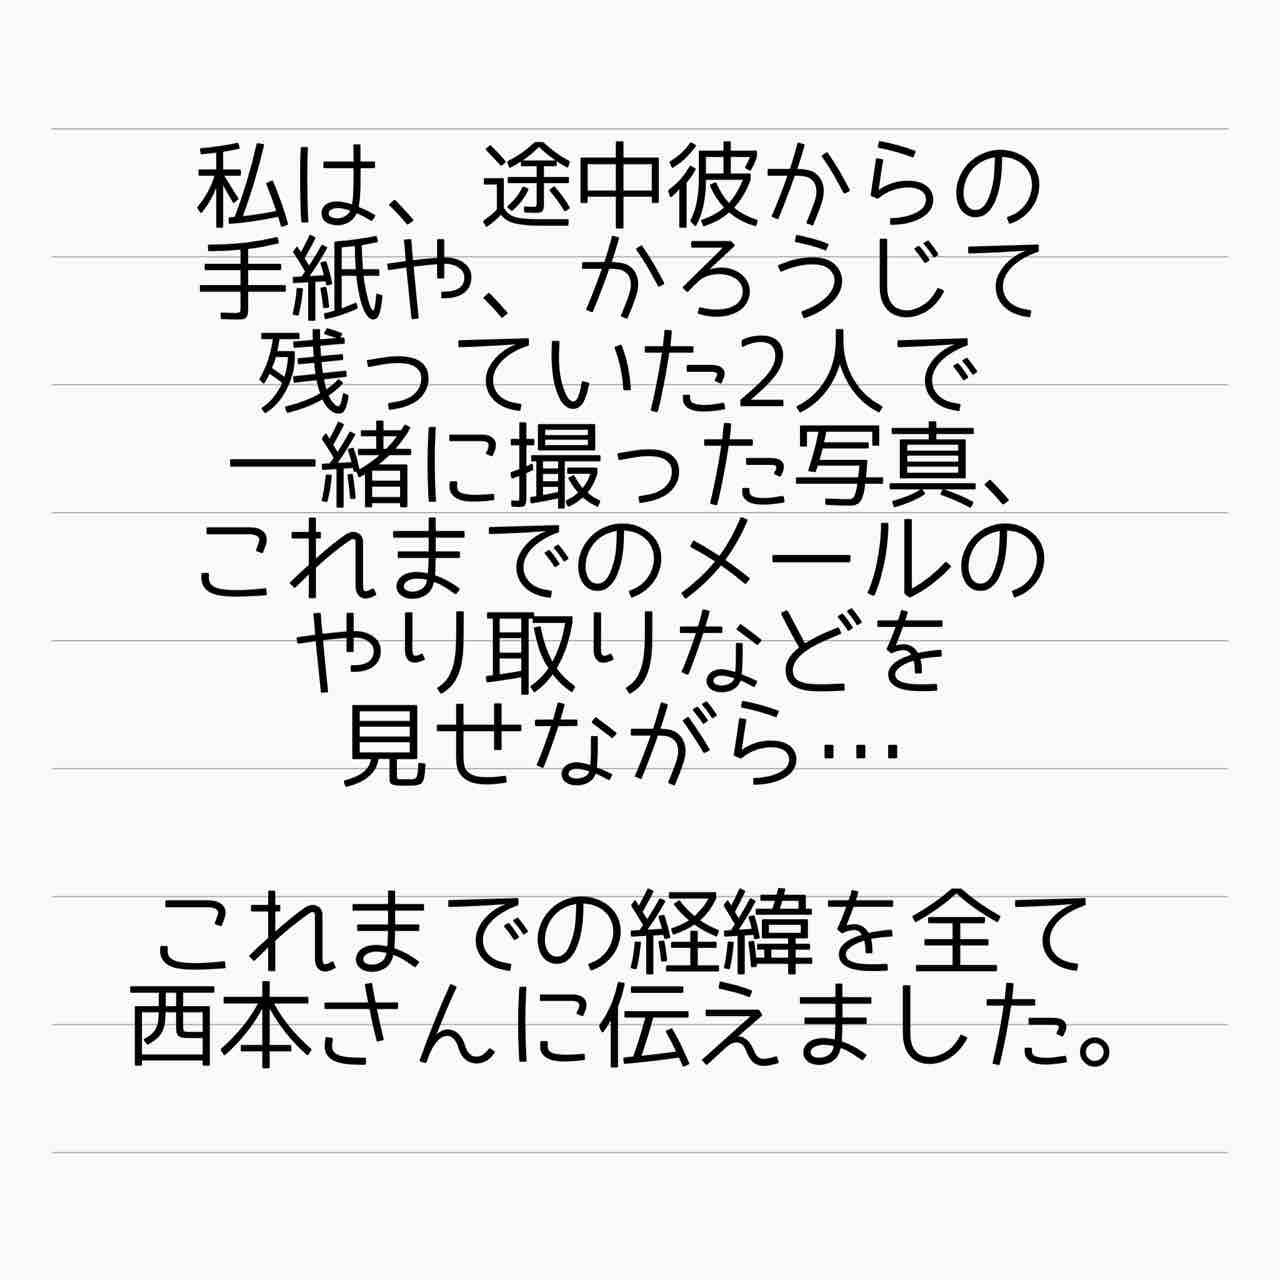 私は、途中彼からの
手紙や、かろうじて
残っていた2人で
一緒に撮った写真、
これまでのメールの
やり取りなどを
見せながら…
これまでの経緯を全て
西本さんに伝えました。